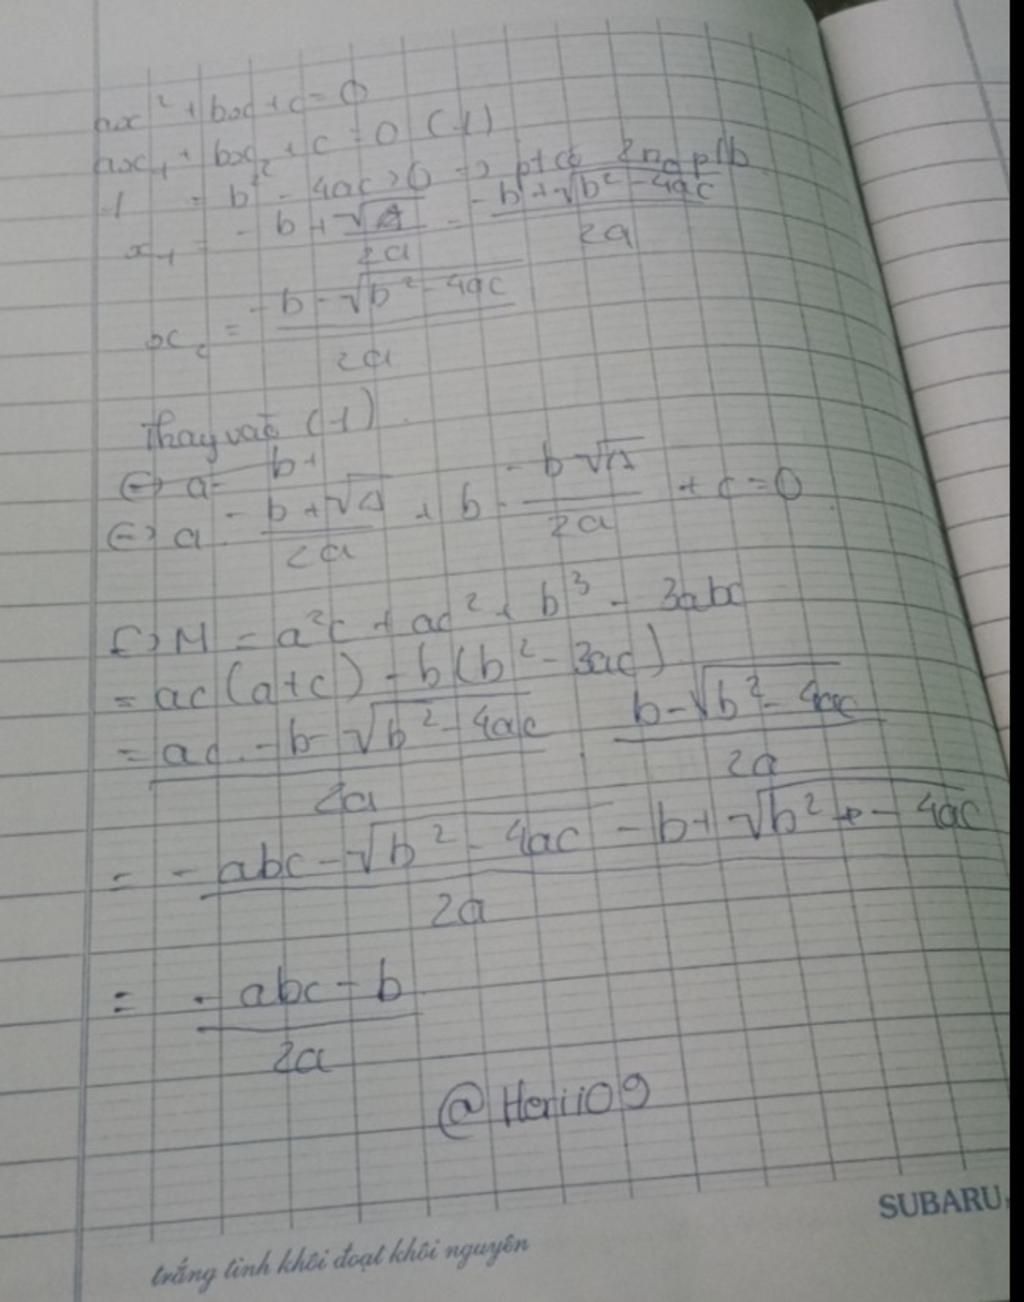 ax² + bx + c = 0
ax₁ + bx₂ + c = 0 (1)
= b² - 4ac > 0 => ptcó 2no pb
x₁ = -b + √Δ / 2a = -b + √b² - 4ac / 2a
x₂ = -b - √b² - 4ac / 2a
Thay vào (1)
(=) a - b +
(=) a . -b + √Δ / 2a + b . -b √Δ / 2a + c = 0
(=) M = a²c + ac² + b³ - 3abc
= ac (a + c) + b (b² - 3ac)
= ac . -b - √b² - 4ac / 2a . b - √b² - 4ac / 2a
= -abc - √b² - 4ac - b + √b² - 4ac / 2a
= -abc - b / 2a
@Herii09
SUBARU
trắng tinh khôi đoạt khôi nguyên